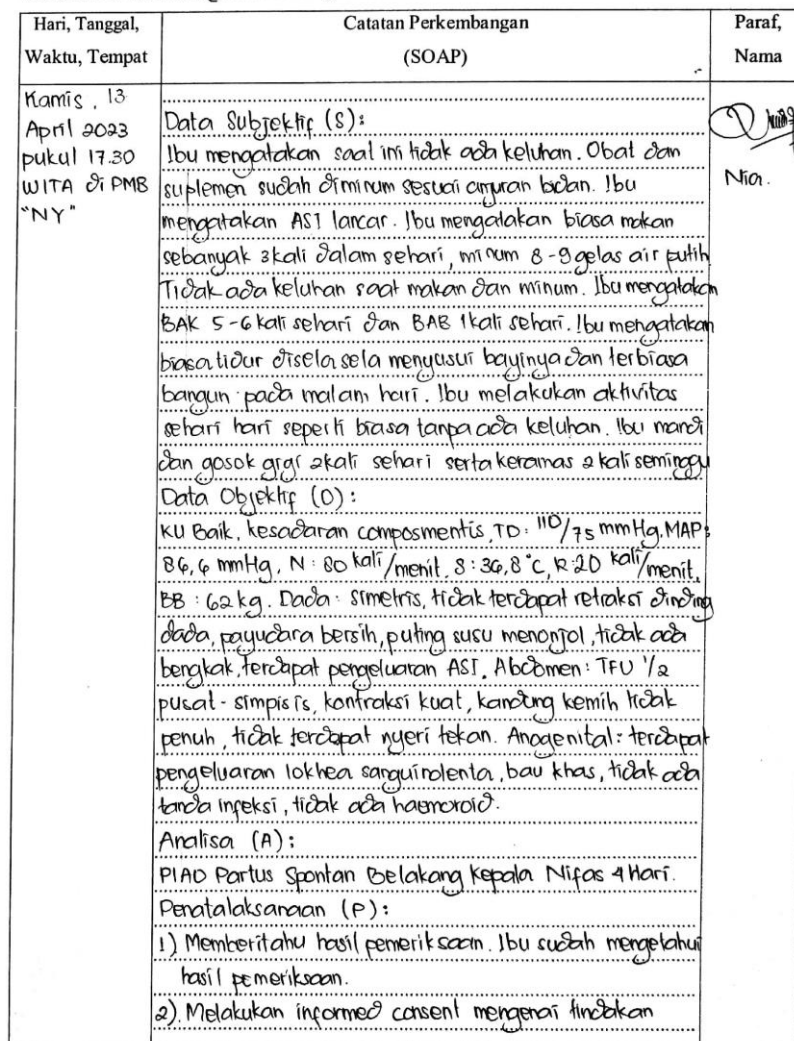 Hari, Tanggal,
Waktu, Tempat
Catatan Perkembangan
(SOAP)
Paraf,
Nama
Kamis, 13
April 2023
pukul 17.30
WITA di PMB
"NY"
Data Subjektif (S):
Ibu mengatakan saat ini tidak ada keluhan. Obat dan
suplemen sudah diminum sesuai anjuran bidan. Ibu
mengatakan ASI lancar. Ibu mengatakan biasa makan
sebanyak 3 kali dalam sehari, minum 8-9 gelas air putih
Tidak ada keluhan saat makan dan minum. Ibu mengatakan
BAK 5-6 kali sehari dan BAB 1 kali sehari. Ibu mengatakan
biasa tidur disela sela menyusui bayinya dan terbiasa
bangun pada malam hari. Ibu melakukan aktivitas
sehari hari seperti biasa tanpa ada keluhan. Ibu mandi
dan gosok gigi 2 kali sehari serta keramas 2 kali seminggu
Data Objektif (O):
KU Baik, kesadaran composmentis, TD: 110/75 mmHg. MAP:
86,6 mmHg, N: 80 kali/menit, S: 36,8 °C, R: 20 kali/menit,
BB: 62 kg. Dada: simetris, tidak terdapat retraksi dinding
dada, payudara bersih, puting susu menonjol, tidak ada
bengkak, terdapat pengeluaran ASI. Abdomen: TFU 1/2
pusat - simpisis, kontraksi kuat, kandung kemih tidak
penuh, tidak terdapat nyeri tekan. Anogenital: terdapat
pengeluaran lokhea sanguinolenta, bau khas, tidak ada
tanda infeksi, tidak ada haemoroid.
Analisa (A):
P1A0 Partus Spontan Belakang Kepala Nifas 4 Hari.
Penatalaksanaan (P):
1) Memberitahu hasil pemeriksaan. Ibu sudah mengetahui
hasil pemeriksaan.
2). Melakukan informed consent mengenai tindakan
Nia.